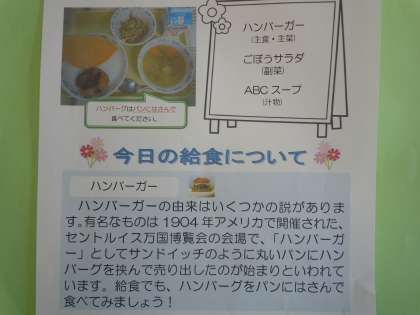 ハンバーガー
(主食・主菜)
ごぼうサラダ
(副菜)
ABCスープ
(汁物)
ハンバーグはパンにはさんで
食べてください。
今日の給食について
ハンバーガー
ハンバーガーの由来はいくつかの説がありま
す。有名なものは1904年アメリカで開催された、
セントルイス万国博覧会の会場で、「ハンバーガ
ー」としてサンドイッチのように丸いパンにハン
バーグを挟んで売り出したのが始まりといわれて
います。給食でも、ハンバーグをパンにはさんで
食べてみましょう！